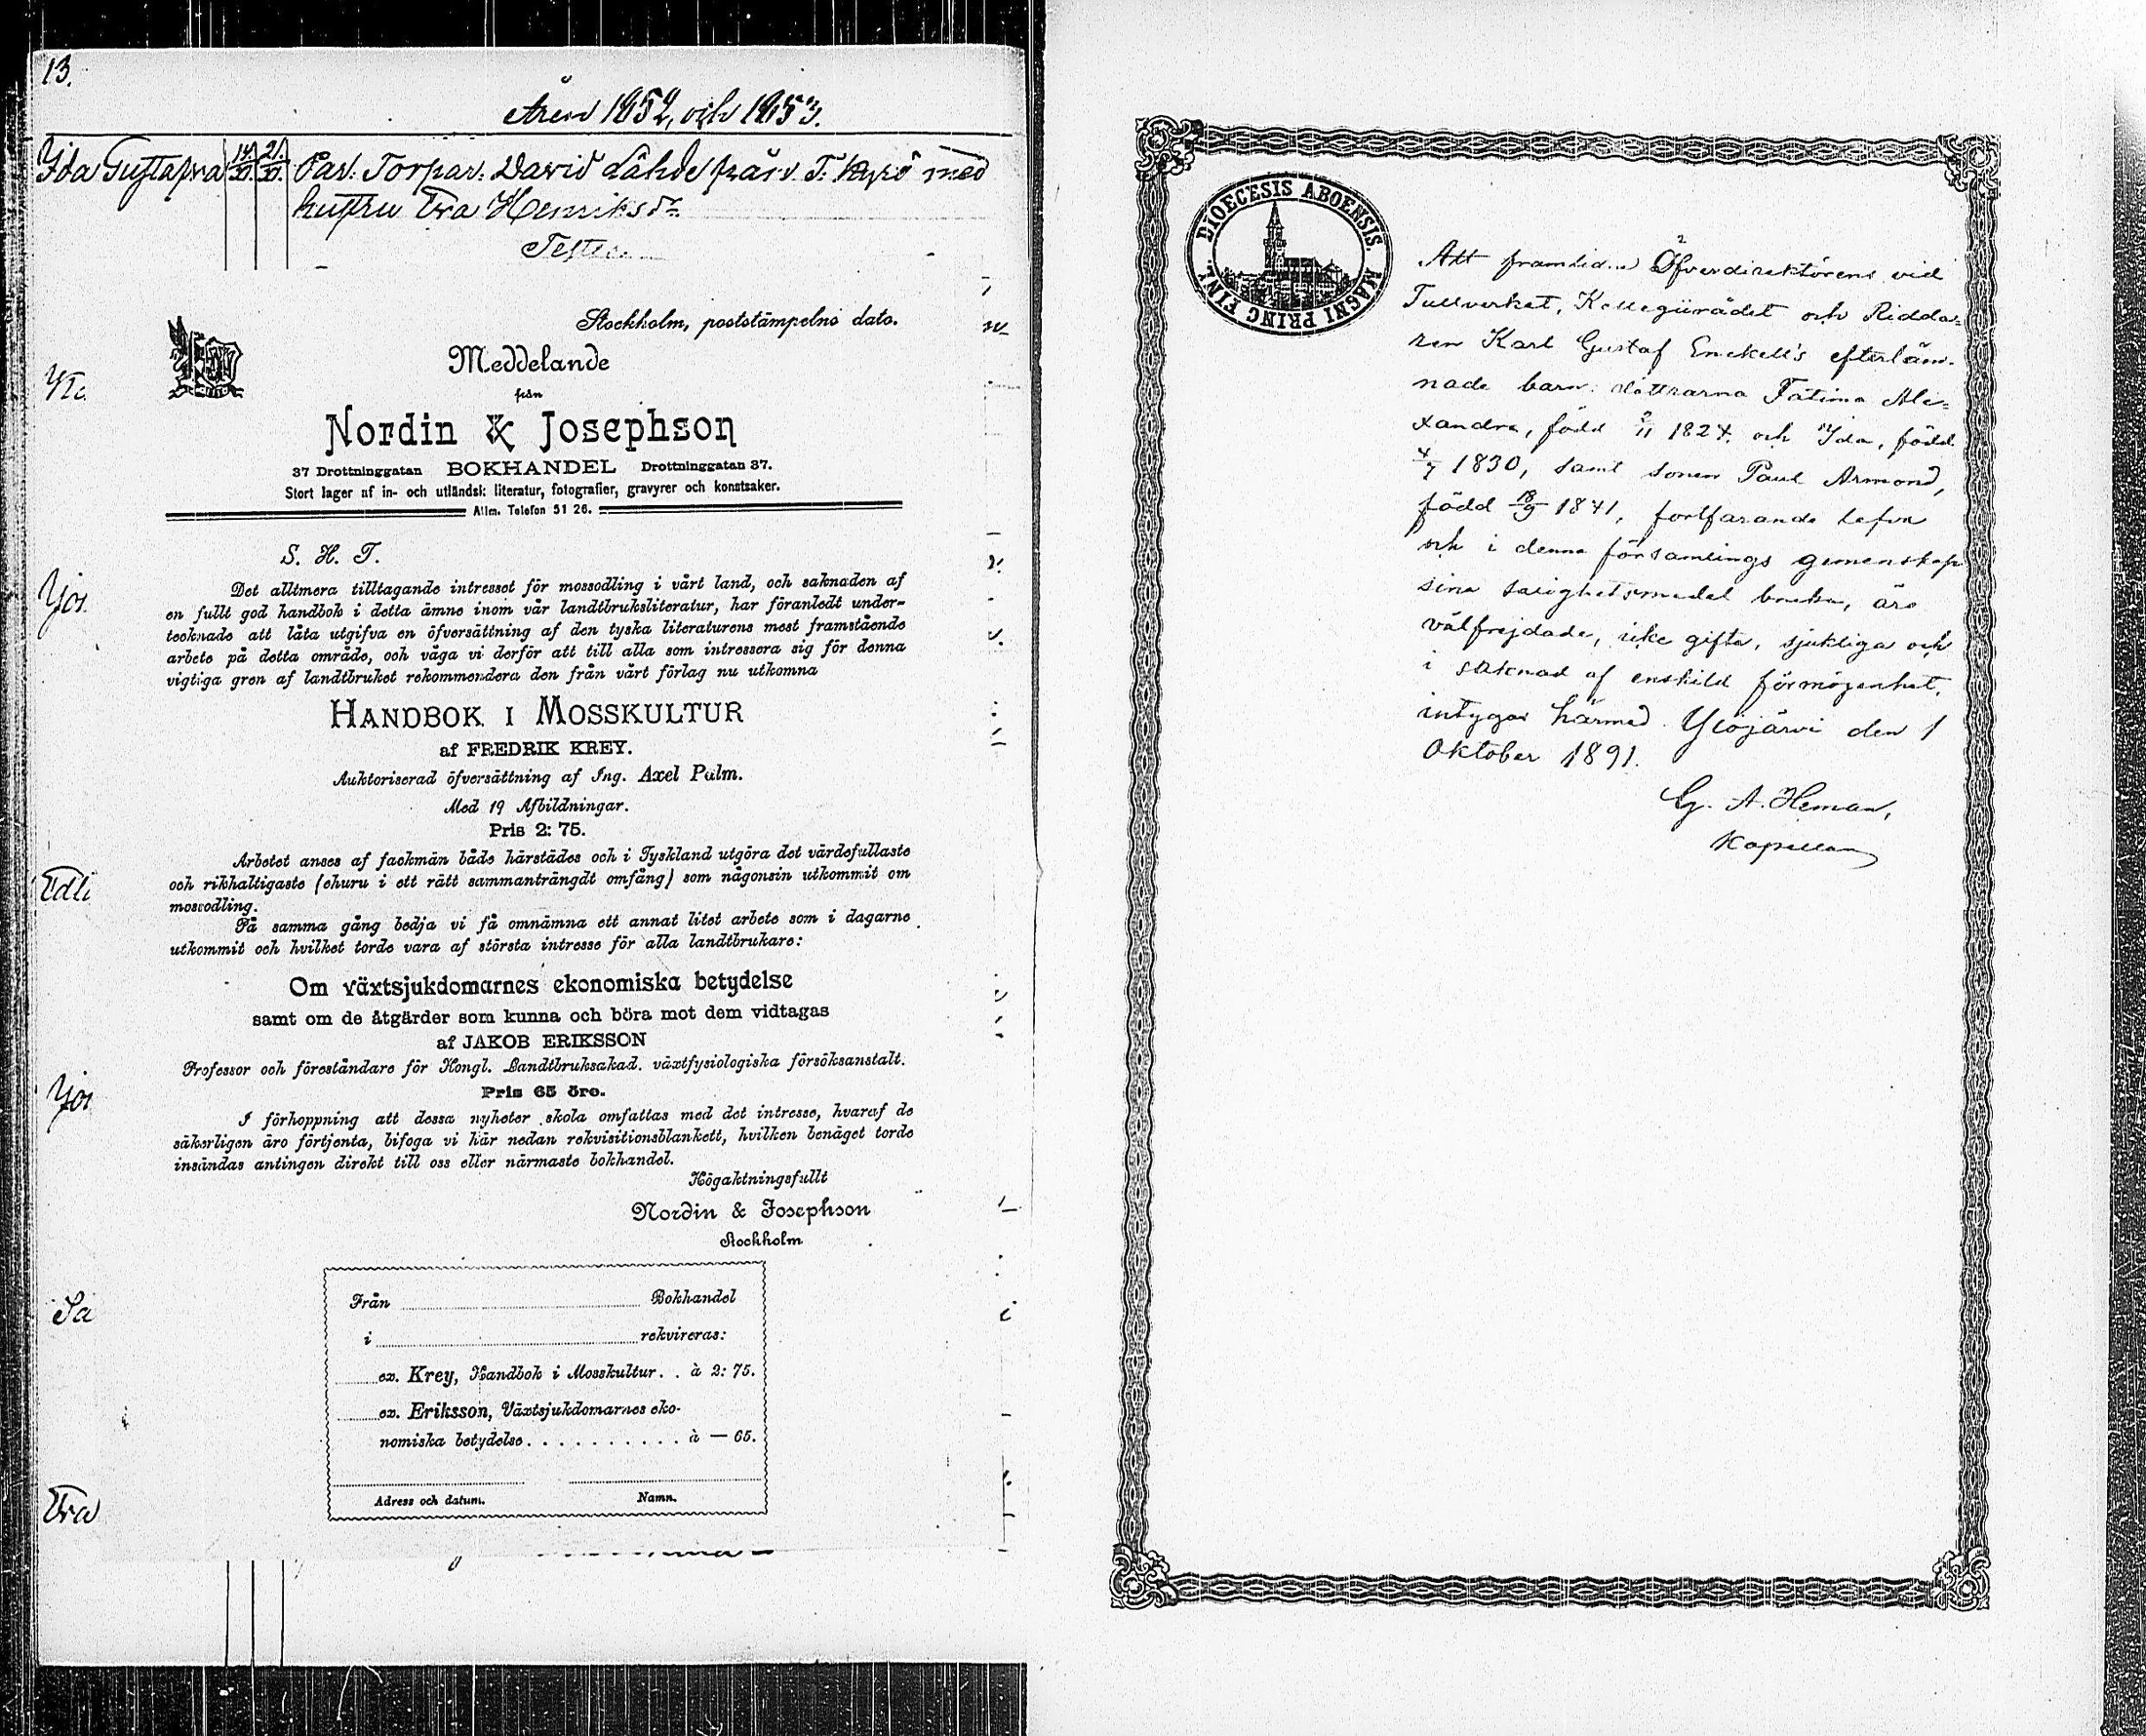 13.
Åren 1852, och 1853.
Ida Gustafva 14/30 21/30 Par. Torpar. David Lähde från T. Kyrö med
hustru Eva Henriksdr
Stockholm, poststämpelns dato.
Meddelande
från
Nordin & Josephson
37 Drottninggatan BOKHANDEL Drottninggatan 37.
Stort lager af in- och utländsk literatur, fotografier, gravyrer och konstsaker.
Allm. Telefon 51 26.
S. H. T.
Det alltmera tilltagande intresset för mossodling i vårt land, och saknaden af
en fullt god handbok i detta ämne inom vår landtbruksliteratur, har föranledt under-
tecknade att låta utgifva en öfversättning af den tyska literaturens mest framstående
arbete på detta område, och våga vi derför att till alla som intressera sig för denna
vigtiga gren af landtbruket rekommendera den från vårt förlag nu utkomna
HANDBOK I MOSSKULTUR
af FREDRIK KREY.
Auktoriserad öfversättning af Ing. Axel Palm.
Med 19 Afbildningar.
Pris 2: 75.
Arbetet anses af fackmän både härstädes och i Tyskland utgöra det värdefullaste
och rikhaltigaste (ehuru i ett rätt sammanträngdt omfång) som någonsin utkommit om
mossodling.
På samma gång bedja vi få omnämna ett annat litet arbete som i dagarne
utkommit och hvilket torde vara af största intresse för alla landtbrukare:
Om växtsjukdomarnes ekonomiska betydelse
samt om de åtgärder som kunna och böra mot dem vidtagas
af JAKOB ERIKSSON
Professor och föreståndare för Kongl. Landtbruksakad. växtfysiologiska försöksanstalt.
Pris 65 öre.
I förhoppning att dessa nyheter skola omfattas med det intresse, hvaraf de
säkerligen äro förtjenta, bifoga vi här nedan rekvisitionsblankett, hvilken benäget torde
insändas antingen direkt till oss eller närmaste bokhandel.
Högaktningsfullt
Nordin & Josephson
Stockholm
Från Bokhandel
i rekvireras:
ex. Krey, Handbok i Mosskultur. . à 2: 75.
ex. Eriksson, Växtsjukdomarnes eko-
nomiska betydelse . . . . . . . . . . à — 65.
Adress och datum. Namn.
Edli
Sa
Eva
DIOECESIS ABOENSIS. MAGNI PRING FINL.
Att framlidne Öfverdirektörens vid
Tullverket, Kollegiirådet och Ridda-
ren Karl Gustaf Enckell's efterläm-
nade barn: döttrarna Fatima Ale-
xandra, född 2/11 1824. och Ida, född
4/7 1830, samt sonen Paul Armond,
född 18/9 1841, fortfarande lefva
och i denna församlings gemenskap
sina salighetsmedel bruka, äro
välfrejdade, icke gifta, sjukliga och
i saknad af enskild förmögenhet,
intygas härmed. Ylöjärvi den 1
Oktober 1891.
G. A. Heman,
Kapellan